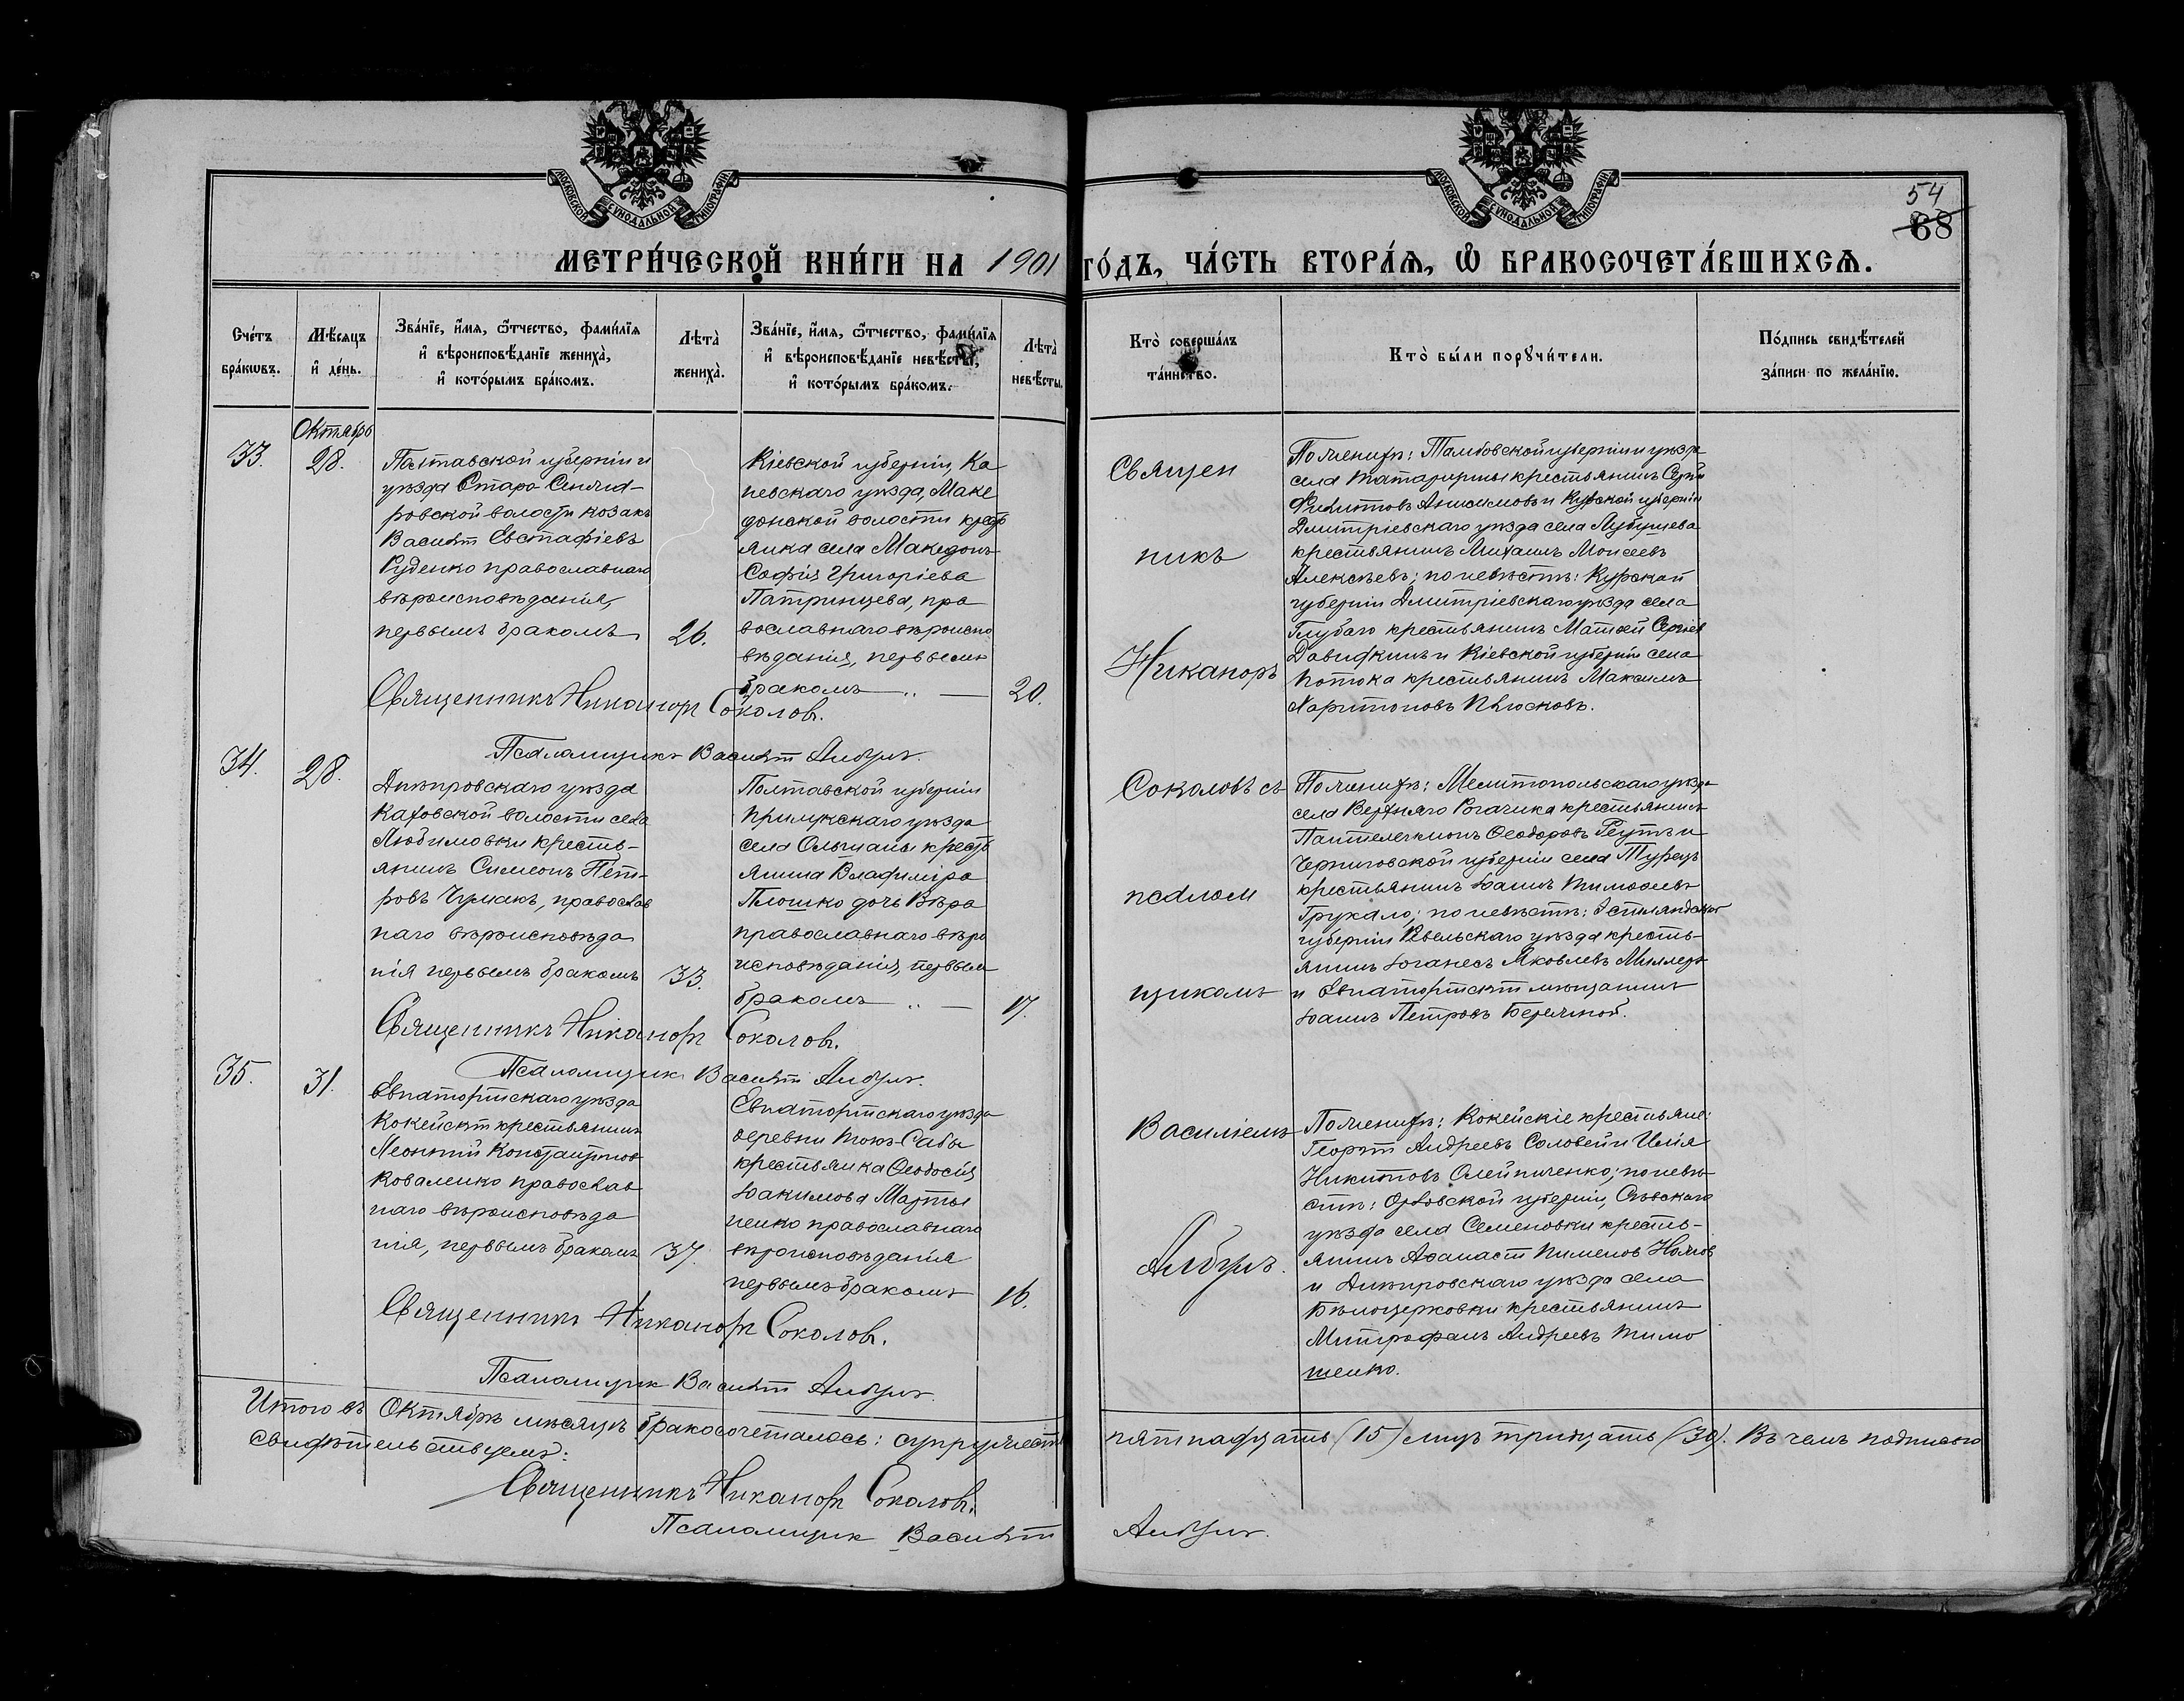 МОСКОВСКОЙ СѴНОДАЛЬНОЙ ТИПОГРАФІИ
МОСКОВСКОЙ СѴНОДАЛЬНОЙ ТИПОГРАФІИ
54
68
МЕТРИ́ЧЕСКОЙ КНИ́ГИ НА 1901 ГО́ДЪ, ЧА́СТЬ ВТОРА́Ѧ, Ѡ БРАКОСОЧЕТА́ВШИХСѦ.
Сче́тъ
бра́кѡвъ.
Мѣ́сяцъ
и҆ де́нь.
Зва́нїе, и҆́мя, ѻ҆́тчество, фами́лїя
и҆ вѣроисповѣ́данїе жениха̀,
и҆ кото́рымъ бра́комъ.
Лѣта̀
жениха̀.
Зва́нїе, и҆́мя, ѻ҆́тчество, фами́лїя
и҆ вѣроисповѣ́данїе невѣ́сты,
и҆ кото́рымъ бра́комъ.
Лѣта̀
невѣ́сты.
Кто̀ соверша́лъ
та́инство.
Кто̀ бы́ли порꙋчи́тели.
По́дпись свидѣ́телей
за́писи по жела́нїю.
Октябрь
33.
28.
Полтавской губерніи и
уѣзда Старо-Сенжа-
ровской волости козакъ
Василій Евстафіевъ
Руденко православнаго
вѣроисповѣданія,
первымъ бракомъ
26.
Кіевской губерніи, Ка
невскаго уѣзда, Маке
донской волости кресть
янка села Македонъ
Софія Григоріева
Патринцева, пра
вославнаго вѣроиспо
вѣданія, первымъ
бракомъ
20.
Священникъ Никаноръ Соколовъ.
Псаломщикъ Василій Анбулъ.
По женихѣ: Тамбовской губерніи и уѣзда
села Татарщины крестьянинъ Сергѣй
Филиповъ Анисимовъ и Курской губерніи
Дмитріевскаго уѣзда села Лубушева
крестьянинъ Михаилъ Моисеевъ
Алексѣевъ; по невѣстѣ: Курской
губерніи Дмитріевскаго уѣзда села
Глубаго крестьянинъ Матѳей Сергіев
Давидкинъ и Кіевской губерніи села
Потока крестьянинъ Максимъ
Харитоновъ Плюсковъ.
34.
28.
Днѣпровскаго уѣзда
Каховской волости села
Любимовки кресть-
янинъ Симеонъ Пет-
ровъ Чумакъ, православ
наго вѣроисповѣда
нія первымъ бракомъ
33.
Полтавской губерніи
Прилукскаго уѣзда
села Ольшаны кресть
янина Владиміра
Плошко дочь Вѣра
православнаго вѣро
исповѣданія, первымъ
бракомъ
17.
Священникъ Никаноръ Соколовъ.
Псаломщикъ Василій Анбулъ.
По женихѣ: Мелитопольскаго уѣзда
села Верхняго Рогачика крестьянинъ
Пантелеимонъ Ѳеодоровъ Реутъ и
Черниговской губерніи села Турецъ
крестьянинъ Іоаннъ Тимоѳеевъ
Грукало; по невѣстѣ: Эстляндской
губерніи Ревельскаго уѣзда кресть-
янинъ Іоганесъ Яковлевъ Миллеръ
и Евпаторійскій мѣщанинъ
Іоаннъ Петровъ Бережной.
35.
31.
Евпаторійскаго уѣзда
Кокейскій крестьянинъ
Леонтій Константиновъ
Коваленко православ
наго вѣроисповѣда
нія, первымъ бракомъ
37.
Евпаторійскаго уѣзда
деревни Токъ-Сабы
крестьянка Ѳеодосія
Іоакимова Марты
ненко православнаго
вѣроисповѣданія
первымъ бракомъ
16.
Священникъ Никаноръ Соколовъ.
Псаломщикъ Василій Анбулъ.
По женихѣ: Кокейскіе крестьяне:
Георгій Андреевъ Соловей и Илія
Никитовъ Олейниченко; по невѣ-
стѣ: Орловской губерніи, Сѣвскаго
уѣзда села Семеновки кресть-
янинъ Аѳанасій Пименовъ
и Днѣпровскаго уѣзда села
Бѣлоцерковки крестьянинъ
Митрофанъ Андреевъ Тимо
шенко.
Священ
никъ
Никаноръ
Соколовъ съ
псалом
щикомъ
Василіемъ
Анбулъ.
Итого въ Октябрѣ мѣсяцѣ бракосочеталось: супружествъ пятнадцать (15) лицъ тридцать (30). Въ чемъ подписью
свидѣтельствуемъ:
Священникъ Никаноръ Соколовъ.
Псаломщикъ Василій Анбулъ.